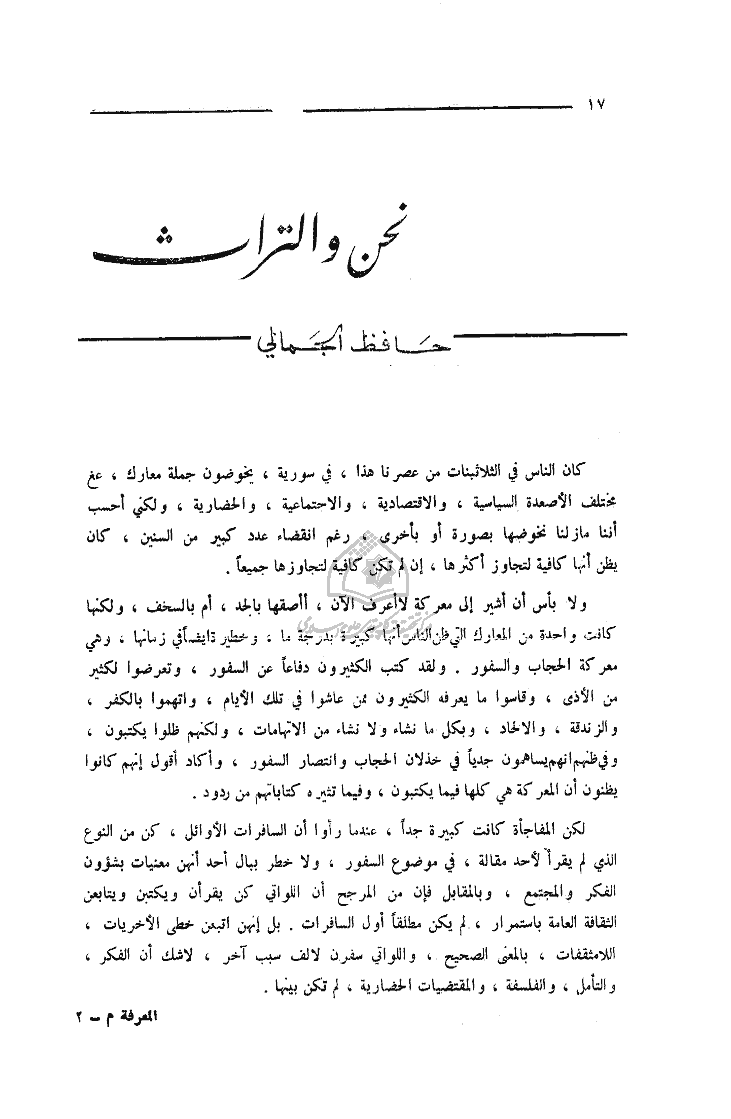 ١٧
نحن والتراث
حافظ الجمالي
كان الناس في الثلاثينات من عصرنا هذا ، في سورية ، يخوضون جملة معارك ، عغ
مختلف الأصعدة السياسية ، والاقتصادية ، والاحتماعية ، والحضارية ، ولكني أحسب
أننا مازلنا نخوضها بصورة أو بأخرى ، رغم انقضاء عدد كبير من السنين ، كان
يظن أنها كافية لتجاوز أكثرها ، إن لم تكن كافية لتجاوزها جميعاً .
ولا بأس أن أشير إلى معركة لاأعرف الآن ، أأصقها بالجد ، أم بالسخف ، ولكنها
كانت واحدة من المعارك التي ظن الناس أنها كبيرة بدرجة ما ، وخطيرة ايضاً في زمانها ، وهي
معركة الحجاب والسفور . ولقد كتب الكثيرون دفاعاً عن السفور ، وتعرضوا لكثير
من الأذى ، وقاسوا ما يعرفه الكثيرون ممن عاشوا في تلك الأيام ، واتهموا بالكفر ،
والزندقة ، والالحاد ، وبكل ما نشاء ولا نشاء من الاتهامات ، ولكنهم ظلوا يكتبون ،
وفي ظنهم انهم يساهمون جدياً في خذلان الحجاب وانتصار السفور ، وأكاد أقول إنهم كانوا
يظنون أن المعركة هي كلها فيما يكتبون ، وفيما تثيره كتاباتهم من ردود .
لكن المفاجأة كانت كبيرة جداً ، عندما رأوا أن السافرات الأوائل ، كن من النوع
الذي لم يقرأ لأحد مقالة ، في موضوع السفور ، ولا خطر ببال أحد أنهن معنيات بشؤون
الفكر والمجتمع ، وبالمقابل فإن من المرجح أن اللواتي كن يقرأن ويكتبن ويتابعن
الثقافة العامة باستمرار ، لم يكن مطلقاً أول السافرات . بل إنهن اتبعن خطى الأخريات ،
اللامثقفات ، بالمعنى الصحيح ، واللواتي سفرن لالف سبب آخر ، لاشك أن الفكر ،
والتأمل ، والفلسفة ، والمقتضيات الحضارية ، لم تكن بينها .
المعرفة م – ٢